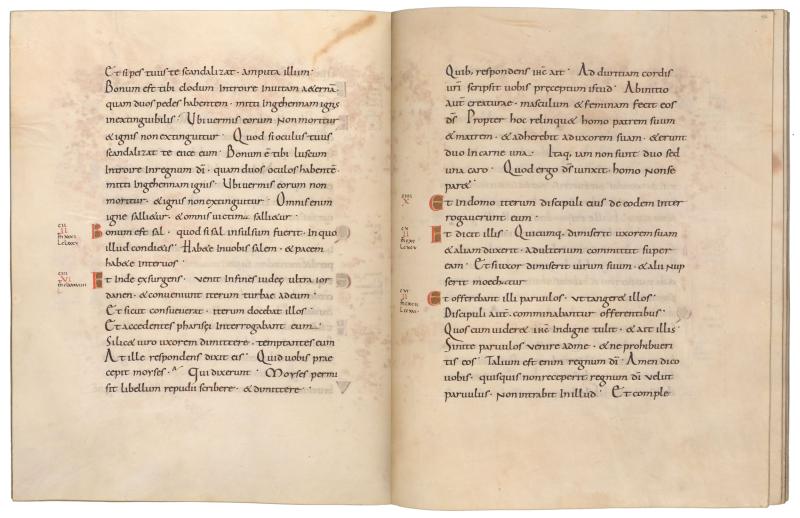 Et si pes tuus te scandalizat · amputa illum ·
Bonum est tibi clodum introire in uitam aeternā ·
quam duos pedes habentem · mitti in gehennam ignis
inextinguibilis · Ubi uermis eorum non moritur
& ignis non extinguitur · Quod si oculus tuus
scandalizat te eice eum · Bonum ē tibi luscum
introire in regnum dī · quam duos oculos habentē ·
mitti in gehennam ignis · Ubi uermis eorum non
moritur · & ignis non extinguitur · Omnis enim
igne salli&ur · & omnis uictima salli&ur ·
Bonum est sal · quod si sal insulsum fuerit · in quo
illud condi&is · Hab&e in uobis salem · & pacem
hab&e inter uos ·
Et inde exsurgens · uenit in fines iudeę ultra ior
danen · & conueniunt iterum turbae ad eum ·
Et sicut consueuerat · iterum docebat illos ·
Et accedentes pharisęi interrogabant eum ·
Si lic& uiro uxorem dimittere · temptantes eum
At ille respondens dixit eis · Quid uobis prae
cepit moyses · Qui dixerunt · Moyses permi
sit libellum repudii scribere · & dimittere ·
Quib; respondens ihc̄ ait · Ad duritiam cordis
uri̅ scripsit uobis pręceptum istud · Ab initio
aut̄ creaturae · masculum & feminam fecit eos
ds̄ · Propter hoc relinqu& homo patrem suum
& matrem · & adherebit ad uxorem suam · & erunt
duo in carne una · Itaq; iam non sunt duo sed
una caro · Quod ergo ds̄ iunxit · homo non se
par&
Et in domo iterum discipuli eius de eodem inter
rogauerunt eum ·
Et dicit illis · Quicumq; dimiserit uxorem suam
& aliam duxerit · adulterium committit super
eam · Et si uxor dimiserit uirum suum · & alii nup
serit moechatur
Et offerebant illi paruulos · ut tanger& illos
Discipuli aut̄ · comminabantur offerentibus ·
Quos cum uider& ihc̄ indigne tulit · & ait illis
Sinite paruulos uenire ad me · & ne prohibueri
tis eos · Talium est enim regnum dī · Amen dico
uobis · quisquis non receperit regnum dī uelut
paruulus · non intrabit in illud · Et comple